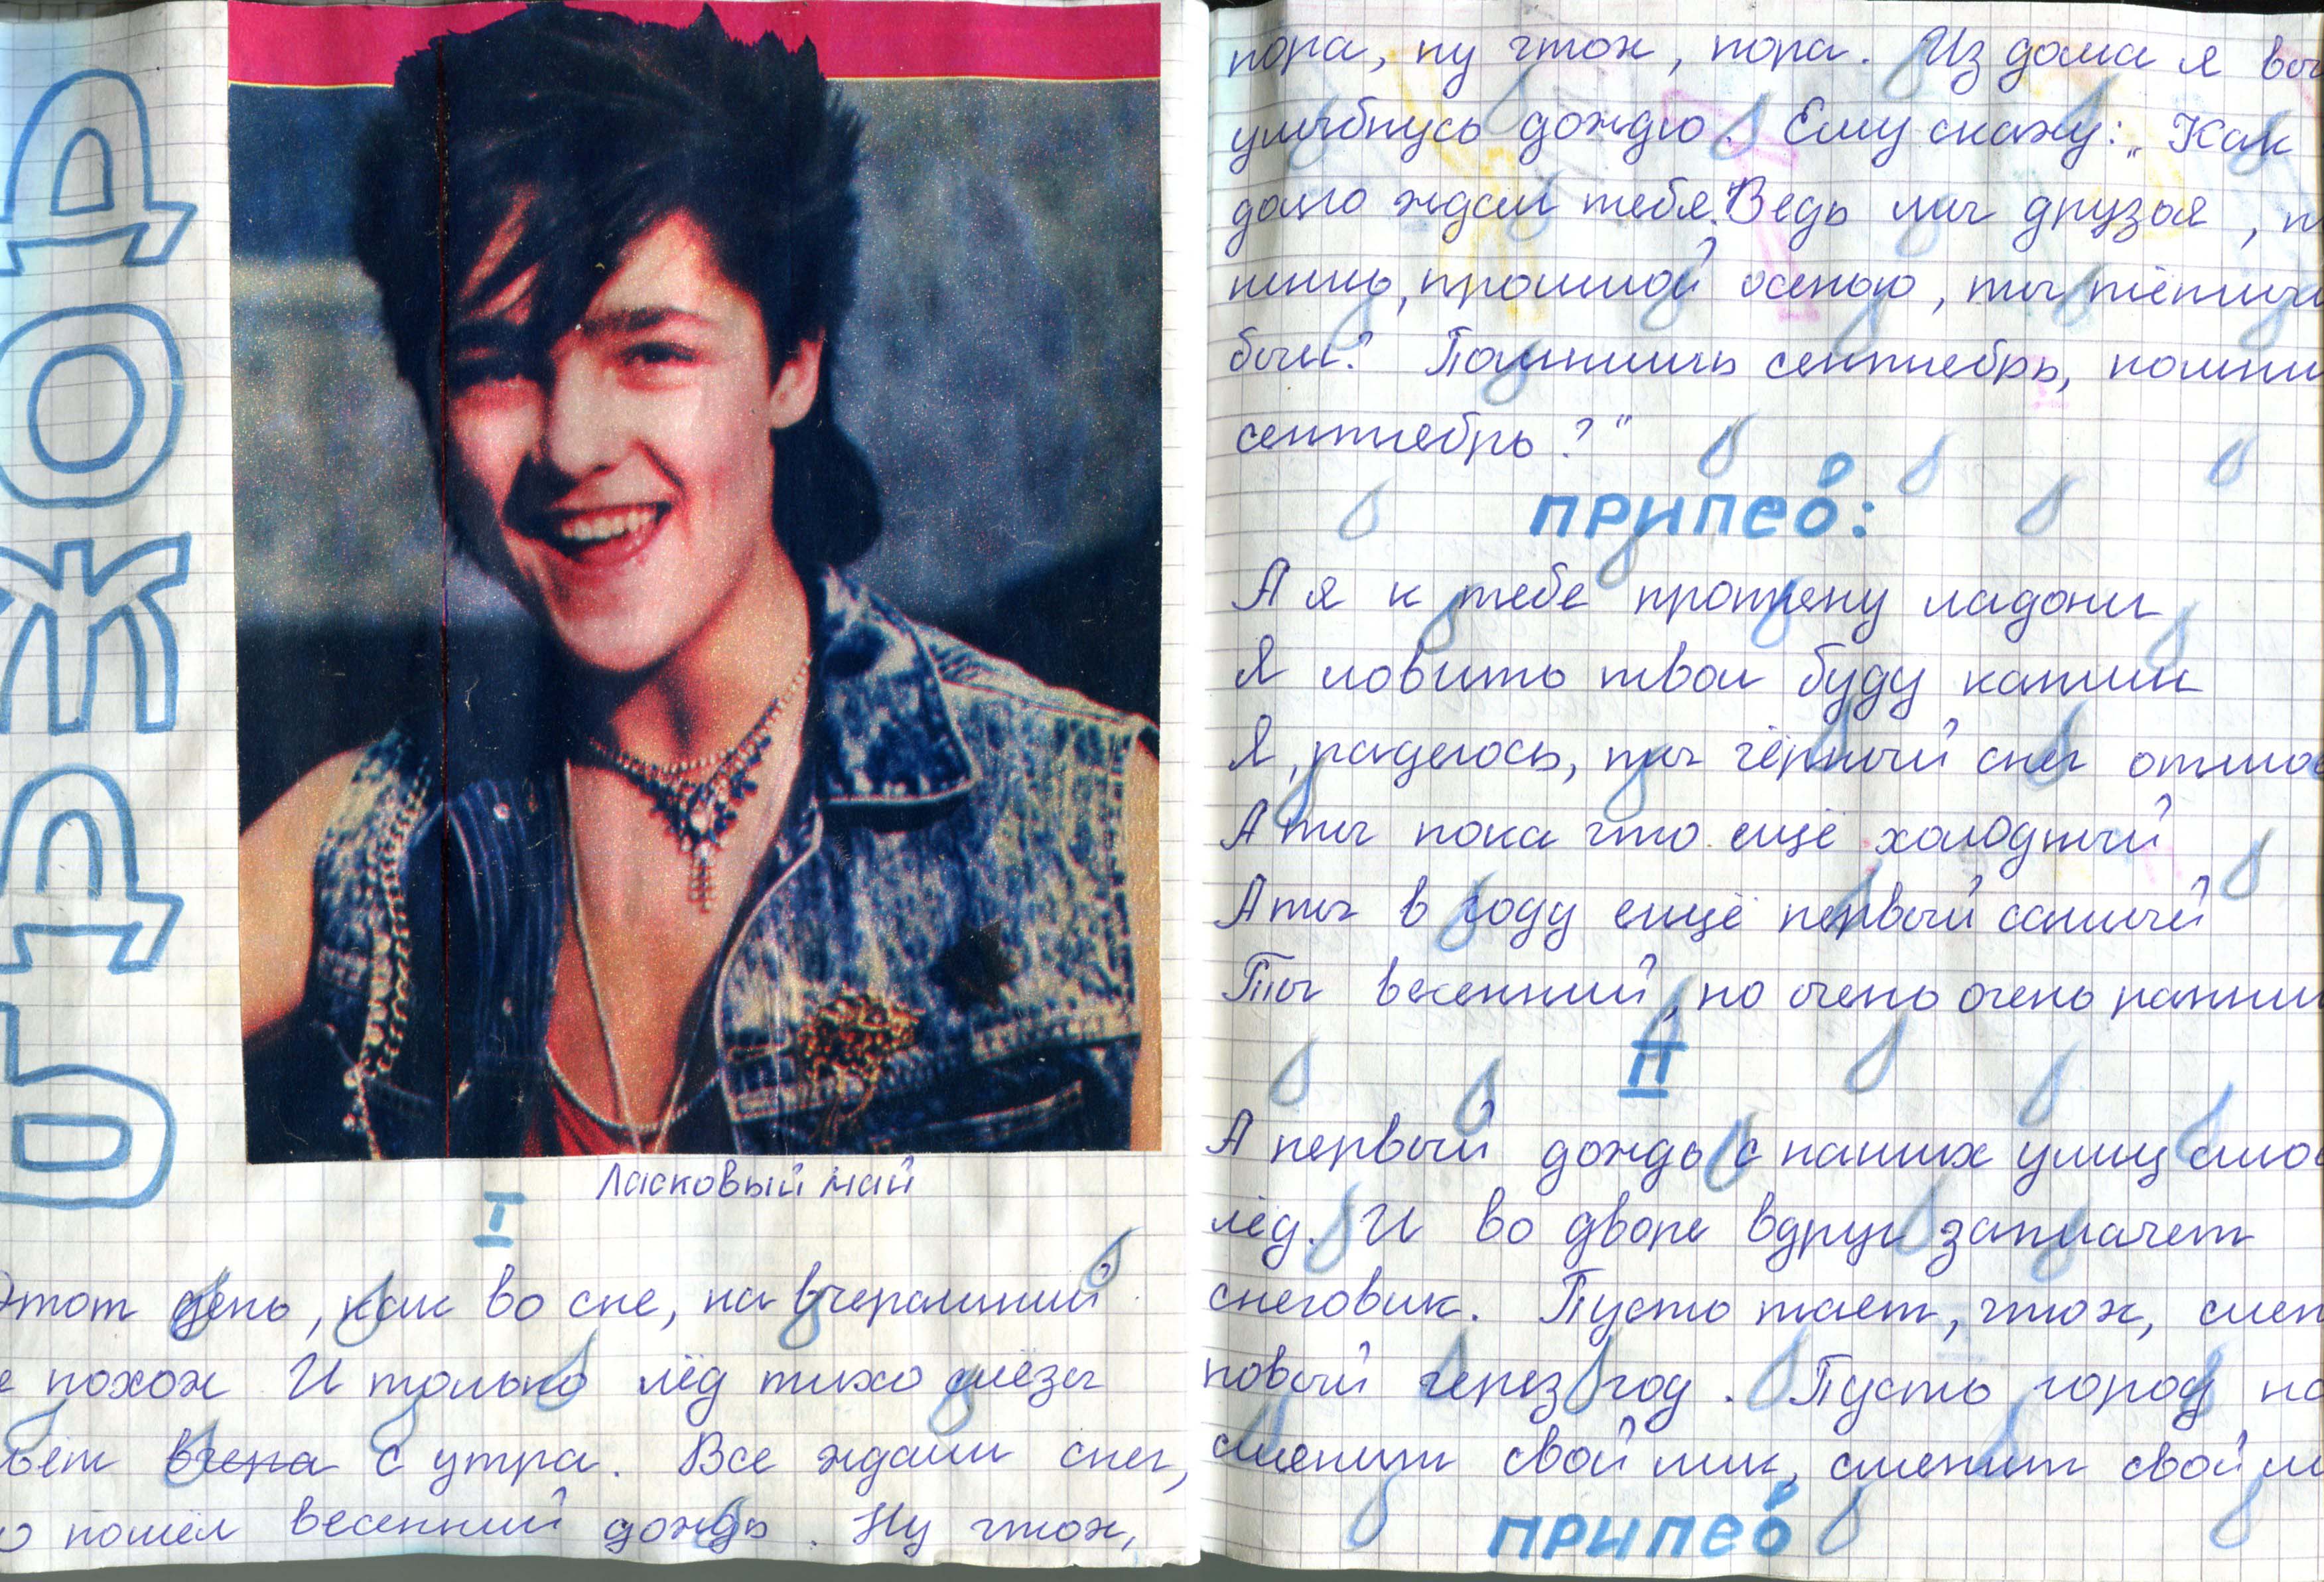 ДОЖДЬ
Ласковый май
I
Этот день, как во сне, на вчерашний
е похож И только лёд тихо слёзы
ьёт вчера с утра. Все ждали снег,
о пошёл весенний дождь. Ну чтож,
пора, ну чтож, пора. Из дома я вы
улыбнусь дождю. Ему скажу: „Как
долго ждал тебя. Ведь мы друзья, п
нишь, прошлой осенью, ты тёплым
был? Помнишь сентябрь, помни
сентябрь?"
припев:
А я к тебе протяну ладони
Я ловить твои буду капли
Я, надеюсь, ты чёрный снег отмо
А ты пока что ещё холодный
А ты в году ещё первый самый
Ты весенний, но очень очень ранни
II
А первый дождь с наших улиц смо
лёд. И во дворе вдруг заплачет
снеговик. Пусть тает, чтож, слеп
новый через год. Пусть город на
сменит свой лик, сменит свой л
припев